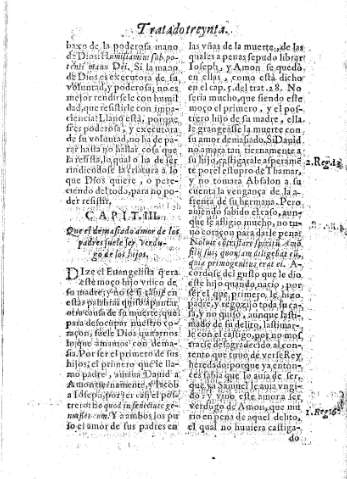 Tratado treynta.
baxo de la poderosa mano
de Dios: Humiliamini sub po-
tenti manu Dei. Si la mano
de Dios es executora de su
voluntad, y poderosa; no es
mejor rendirsele con humil
dad, que resistirle con impa-
ciencia? Llano està, porque
si es poderosa, y executora
de su voluntad, no ha de pa-
rar hasta no hallar cosa que
la resista, lo qual o ha de ser
rindiendose la criatura a lo
que Dios quiere, o pe-
reciendo del todo, para no po
der resistir.
CAPIT. III.
Que el demasiado amor de los
padres suele ser verdu-
go de los hijos.
DIze el Euangelista q̃ era
este moço hijo vnico de
su madre; y no se si
estas palabras quiso apuntar
otra causa de su muerte; que
para desocupar nuestro co-
raçon, suele Dios quitarnos
lo que amamos con dema-
sia. Por ser el primero de sus
hijos; el primero que le lla-
mo padre, amaua Dauid a
Amon tiernamente, y Iacob
a Ioseph, por ser en el pos-
trero: Eo quod in senectute ge-
nuisset eum. Y a ambos los pu
so el amor de sus padres en
las vñas de la muerte, de las
quales a penas se pudo librar
Ioseph, y Amon se quedò
en ellas, como està dicho
en el cap. 5. del trat. 28. No
seria mucho, que siendo este
moço el primero, y el pos-
trero hijo de su madre, ella
le grangeasse la muerte con
su amor demasiado. Si Dauid
no amara tan tiernamente a
su hijo, castigarale asperamẽ
te por el estupro de Thamar,
y no tomara Absalon a su
cuenta la vengança de la a-
frenta de su hermana. Pero
auiendo sabido el caso, aun-
que le afligio mucho, no tu-
uo coraçon para darle pena:
Noluit contristare spiritũ Amõ
filij sui, quoniam diligebat eũ,
quia primogenitus erat ei. A-
cordose del gusto que le dio
este hijo quando nacio, por
ser el que primero le hizo
padre, y regozijò toda su ca-
sa, y no quiso, aunque lasti-
mado de su delito, lastimar-
le con el castigo, por no mos-
trarse desagradecido al con-
tento que tuuo de verse Rey
heredado: porque ya enton-
ces sabia que lo auia de ser,
que ya Samuel le auia vngi-
do; y vino este amor a ser
verdugo de Amon, que mu-
rio en pena de aquel delito,
el qual no huuiera castiga-
do
2. Reg. 13.
1. Reg. 16.